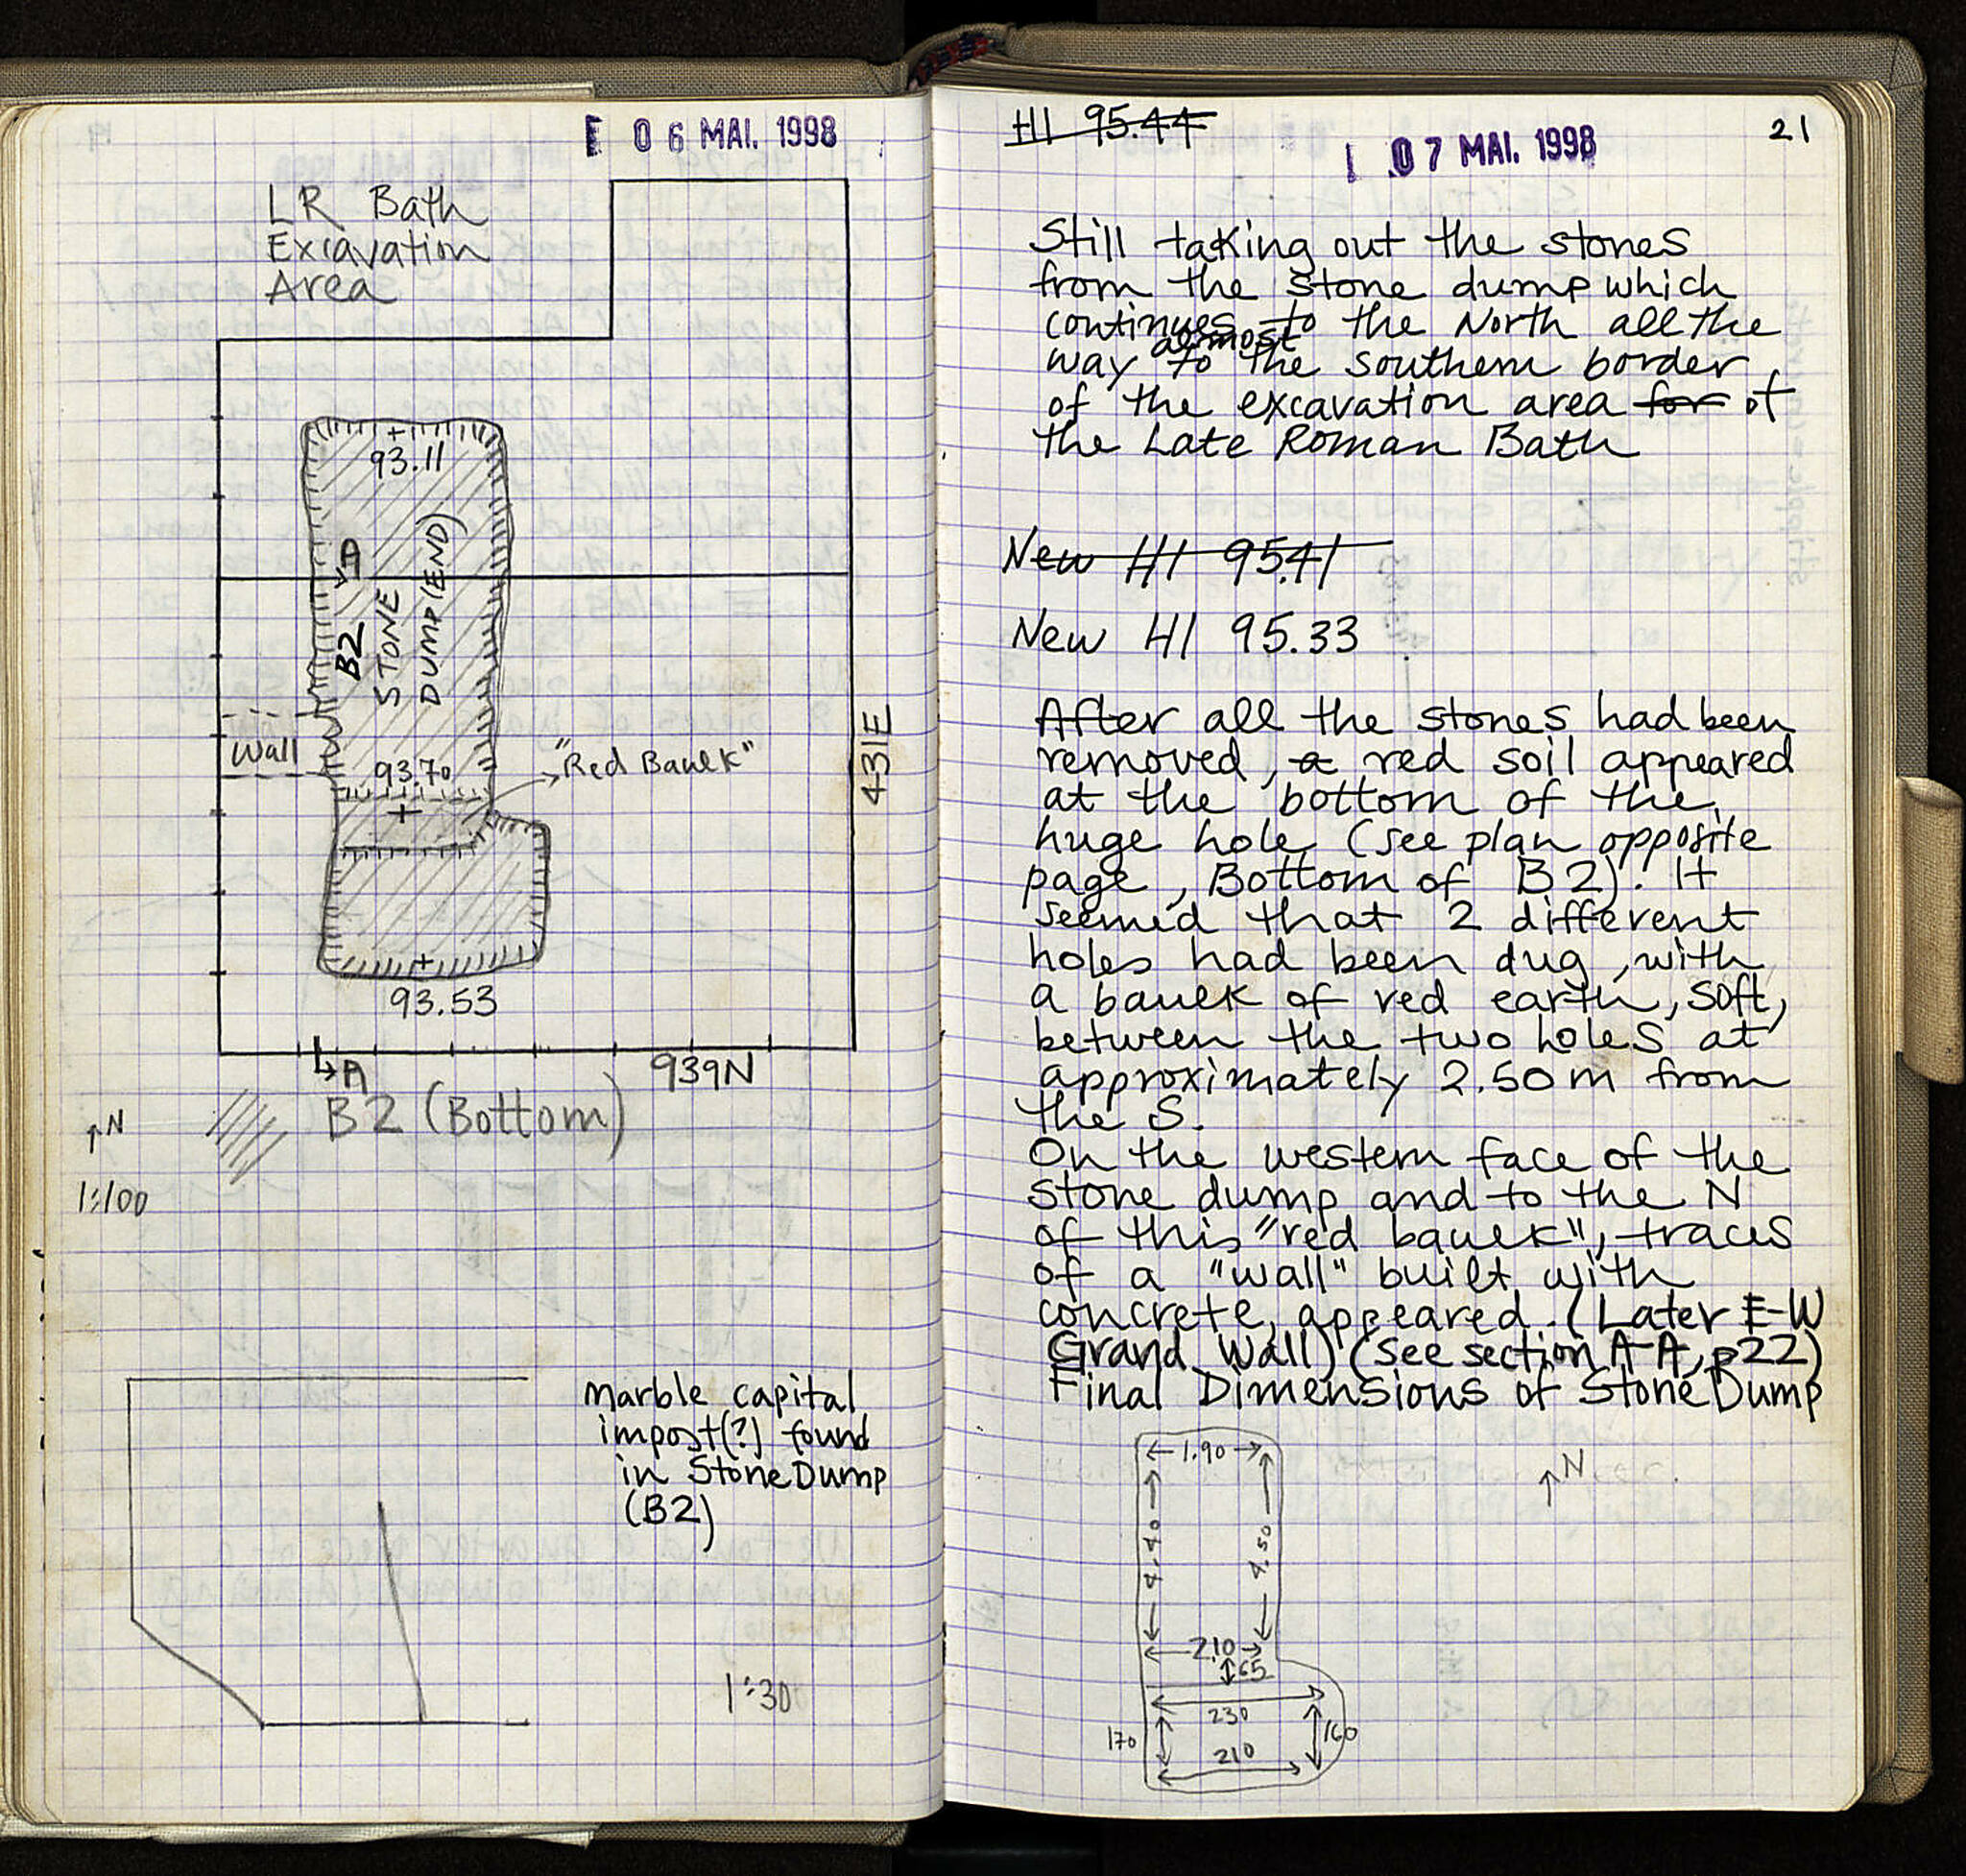 E 06 MAI. 1998
LR Bath
Excavation
Area
93.11
A
B2
STONE
DUMP (END)
Wall
93.70
"Red Baulk"
431E
93.53
A
939N
B2 (Bottom)
N
1:100
marble capital
impost(?) found
in Stone Dump
(B2)
1:30
HI 95.44
07 MAI. 1998
21
Still taking out the stones
from the stone dump which
continues to the North all the
almost
way to the southern border
of the excavation area for of
the Late Roman Bath
New HI 95.41
New HI 95.33
After all the stones had been
removed, a red soil appeared
at the bottom of the
huge hole (see plan opposite
page, Bottom of B2). It
seemed that 2 different
holes had been dug, with
a baulk of red earth, soft,
between the two holes at
approximately 2.50m from
the S.
On the western face of the
stone dump and to the N
of this "red baulk", traces
of a "wall" built with
concrete, appeared. (Later E-W
Grand Wall) (see section A-A, p22)
Final Dimensions of Stone Dump
1.90
N
4.40
4.50
2.10
65
230
170
160
210